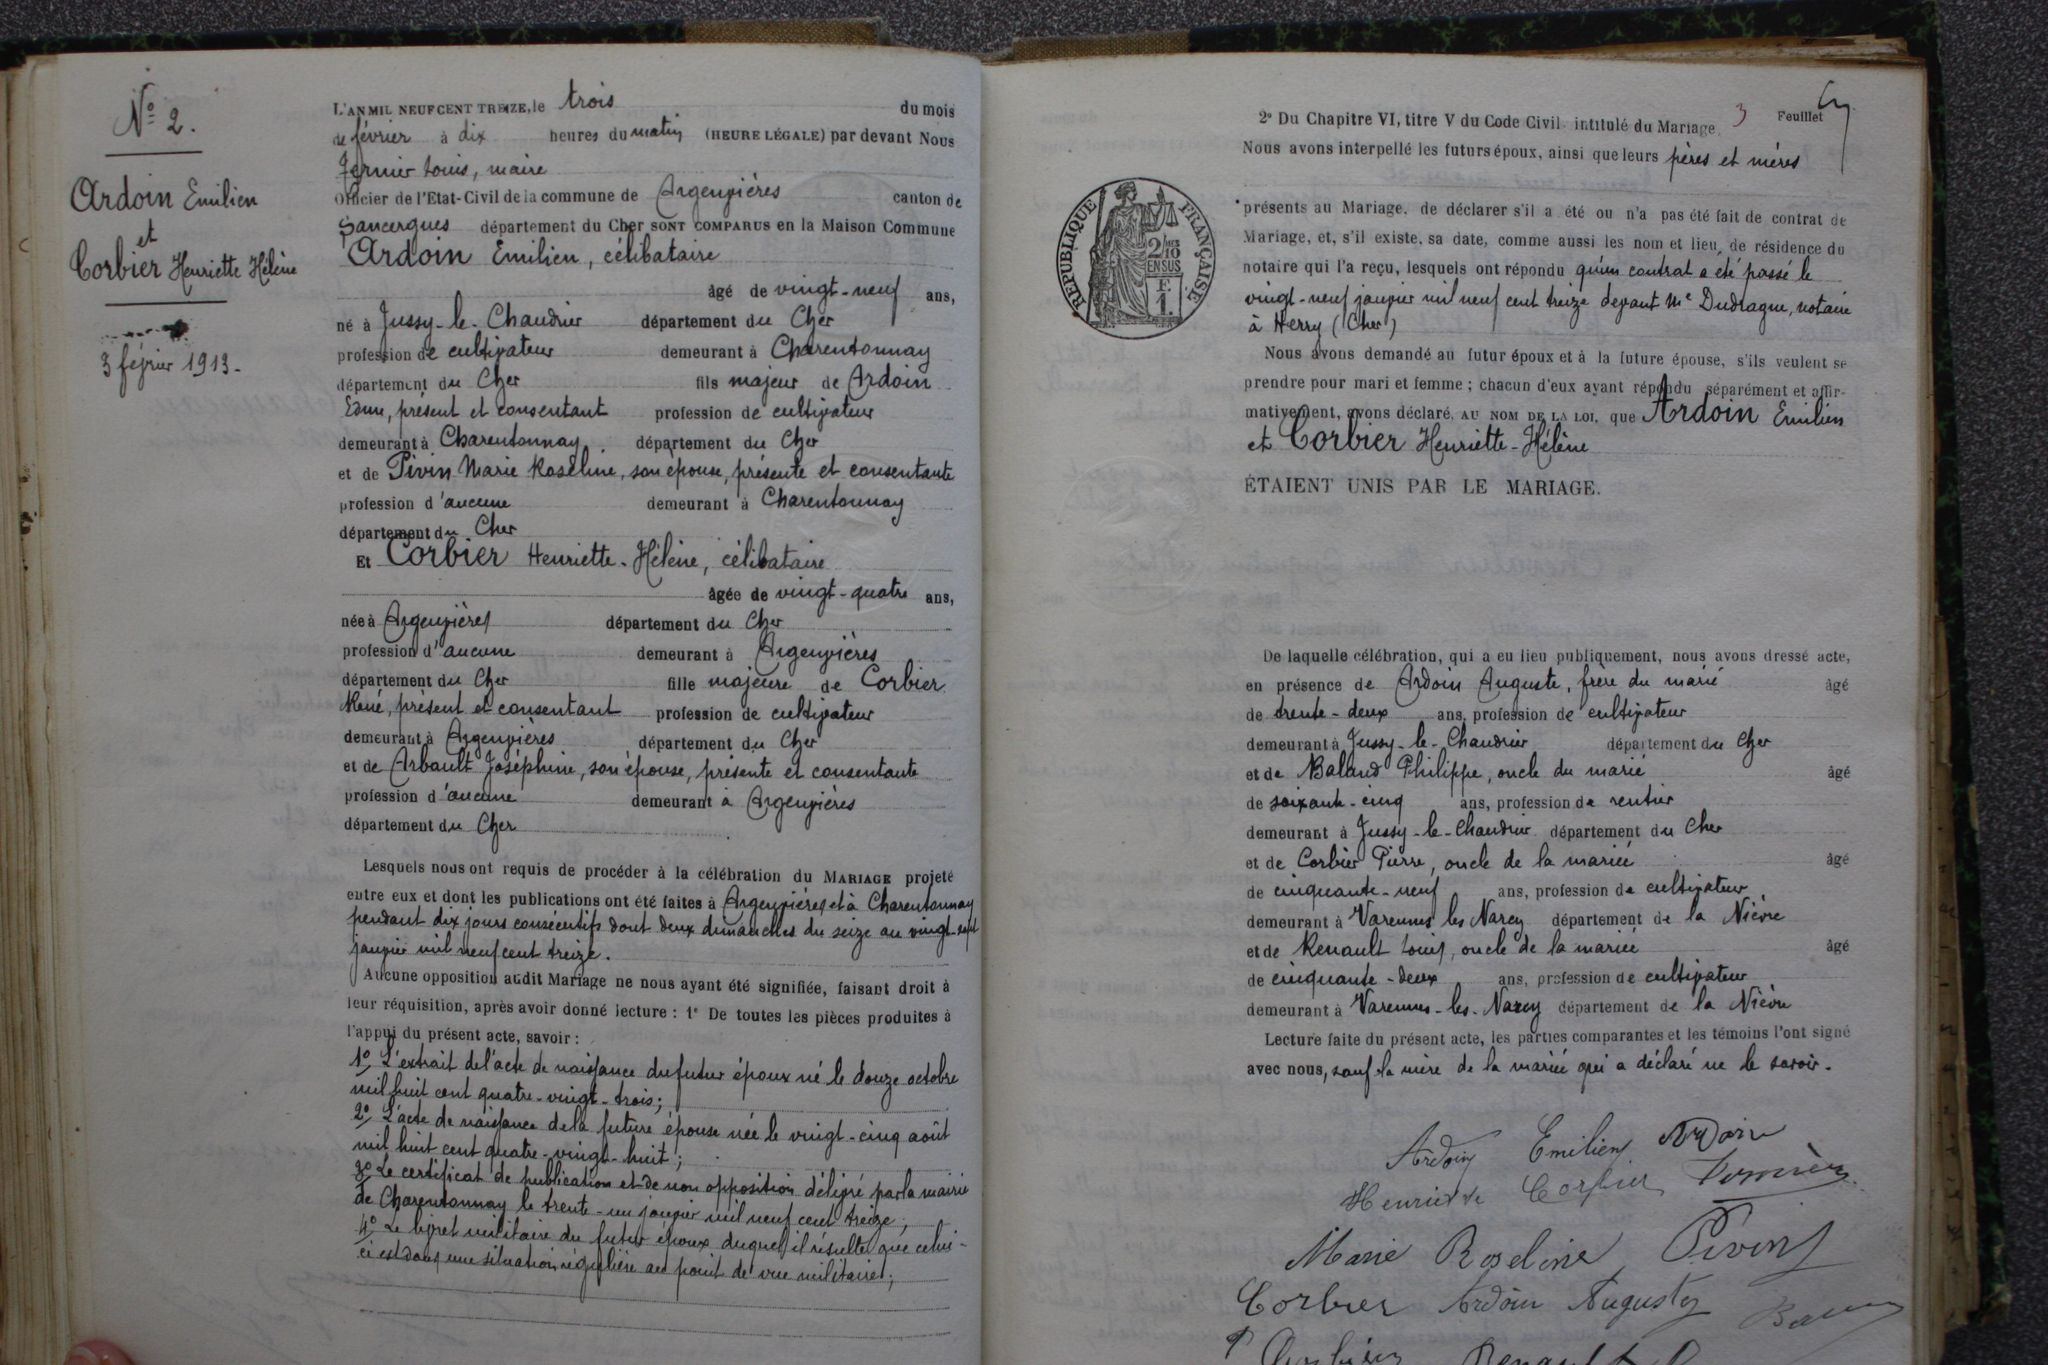 N° 2.
Ardoin Emilien
et
Corbier Henriette Hélène
3 février 1913.
L'AN MIL NEUF CENT TREIZE, le trois du mois
de février à dix heures du matin (HEURE LÉGALE) par devant Nous
Louis, maire
Officier de l'Etat-Civil de la commune de Argenvières canton de
Sancergues département du Cher SONT COMPARUS en la Maison Commune
Ardoin Emilien, célibataire
âgé de vingt-neuf ans,
né à Jussy-le-Chaudrier département du Cher
profession de cultivateur demeurant à Charentonnay
département du Cher fils majeur de Ardoin
Edme, présent et consentant profession de cultivateur
demeurant à Charentonnay département du Cher
et de Pivin Marie Roseline, son épouse, présente et consentante
profession d'aucune demeurant à Charentonnay
département du Cher
Et Corbier Henriette-Hélène, célibataire
âgée de vingt-quatre ans,
née à Argenvières département du Cher
profession d'aucune demeurant à Argenvières
département du Cher fille majeure de Corbier
René, présent et consentant profession de cultivateur
demeurant à Argenvières département du Cher
et de Arbault Joséphine, son épouse, présente et consentante
profession d'aucune demeurant à Argenvières
département du Cher
Lesquels nous ont requis de procéder à la célébration du MARIAGE projeté
entre eux et dont les publications ont été faites à Argenvières et à Charentonnay
pendant dix jours consécutifs dont deux dimanches du seize au vingt-sept
janvier mil neuf cent treize.
Aucune opposition audit Mariage ne nous ayant été signifiée, faisant droit à
leur réquisition, après avoir donné lecture : 1° De toutes les pièces produites à
l'appui du présent acte, savoir :
1° L'extrait de l'acte de naissance du futur époux né le douze octobre
mil huit cent quatre-vingt-trois;
2° L'acte de naissance de la future épouse née le vingt-cinq août
mil huit cent quatre-vingt-huit;
3° Le certificat de publication et de non opposition délivré par la mairie
de Charentonnay le trente-un janvier mil neuf cent treize;
4° Le livret militaire du futur époux duquel il résulte que celui-
ci est dans une situation régulière au point de vue militaire;
3 Feuillet
2° Du Chapitre VI, titre V du Code Civil intitulé du Mariage
Nous avons interpellé les futurs époux, ainsi que leurs pères et mères
RÉPUBLIQUE FRANÇAISE
2/10 EN SUS
F. 1.
présents au Mariage, de déclarer s'il a été ou n'a pas été fait de contrat de
Mariage, et, s'il existe, sa date, comme aussi les nom et lieu de résidence du
notaire qui l'a reçu, lesquels ont répondu qu'un contrat a été passé le
vingt-neuf janvier mil neuf cent treize devant Me Dudragne, notaire
à Herry (Cher)
Nous avons demandé au futur époux et à la future épouse, s'ils veulent se
prendre pour mari et femme ; chacun d'eux ayant répondu séparément et affir-
mativement, avons déclaré, AU NOM DE LA LOI, que Ardoin Emilien
et Corbier Henriette-Hélène
ÉTAIENT UNIS PAR LE MARIAGE.
De laquelle célébration, qui a eu lieu publiquement, nous avons dressé acte,
en présence de Ardoin Auguste, frère du marié âgé
de trente-deux ans, profession de cultivateur
demeurant à Jussy-le-Chaudrier département du Cher
et de Baland Philippe, oncle du marié âgé
de soixante-cinq ans, profession de rentier
demeurant à Jussy-le-Chaudrier département du Cher
et de Corbier Pierre, oncle de la mariée âgé
de cinquante-neuf ans, profession de cultivateur
demeurant à Varennes les Narcy département de la Nièvre
et de Renault Louis, oncle de la mariée âgé
de cinquante-deux ans, profession de cultivateur
demeurant à Varennes-les-Narcy département de la Nièvre
Lecture faite du présent acte, les parties comparantes et les témoins l'ont signé
avec nous, sauf la mère de la mariée qui a déclaré ne le savoir.
Ardoin Emilien Ardoin
Henriette Corbier
Marie Roseline Pivin
Corbier Ardoin Auguste
Corbier Renault